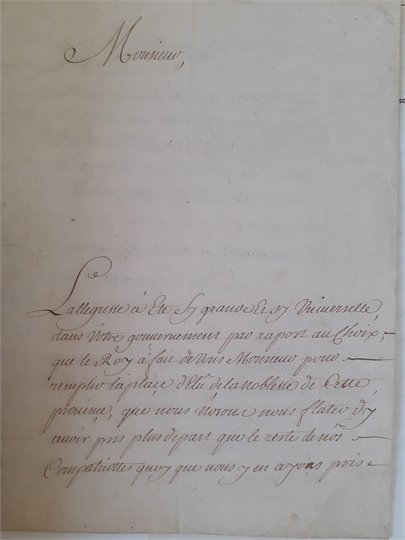 Monsieur,
L'allegresse à Eté sy grande Et sy Vniverselle,
dans Votre gouvernement par raport au Choix,
que le Roy a fait de Vous Monsieur pour
remplir la place d'Elu de la Noblesse de Cette
province, que nous n'osons nous flater d'y
avoir pris plus de part que le reste de nos
Compatriottes quoy que nous y en ayons pris